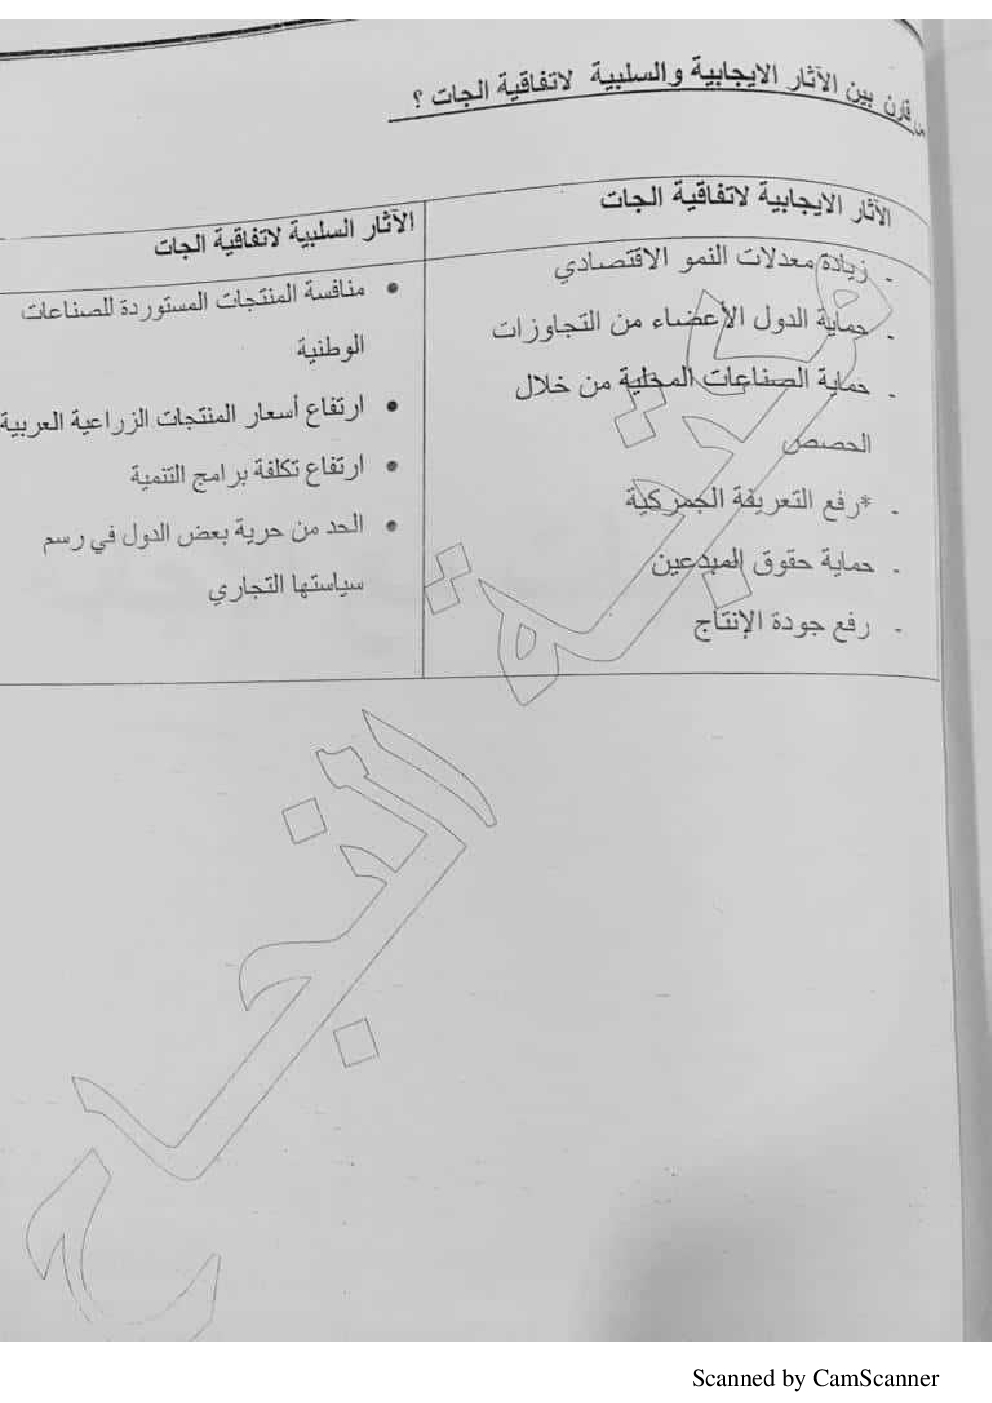 قارن بين الآثار الايجابية والسلبية لاتفاقية الجات ؟
الآثار الايجابية لاتفاقية الجات
- زيادة معدلات النمو الاقتصادي
- حماية الدول الأعضاء من التجاوزات
- حماية الصناعات المحلية من خلال
الحصص
- *رفع التعريفة الجمركية
- حماية حقوق المبدعين
- رفع جودة الإنتاج
الآثار السلبية لاتفاقية الجات
• منافسة المنتجات المستوردة للصناعات
الوطنية
• ارتفاع أسعار المنتجات الزراعية العربية
• ارتفاع تكلفة برامج التنمية
• الحد من حرية بعض الدول في رسم
سياستها التجاري
Scanned by CamScanner